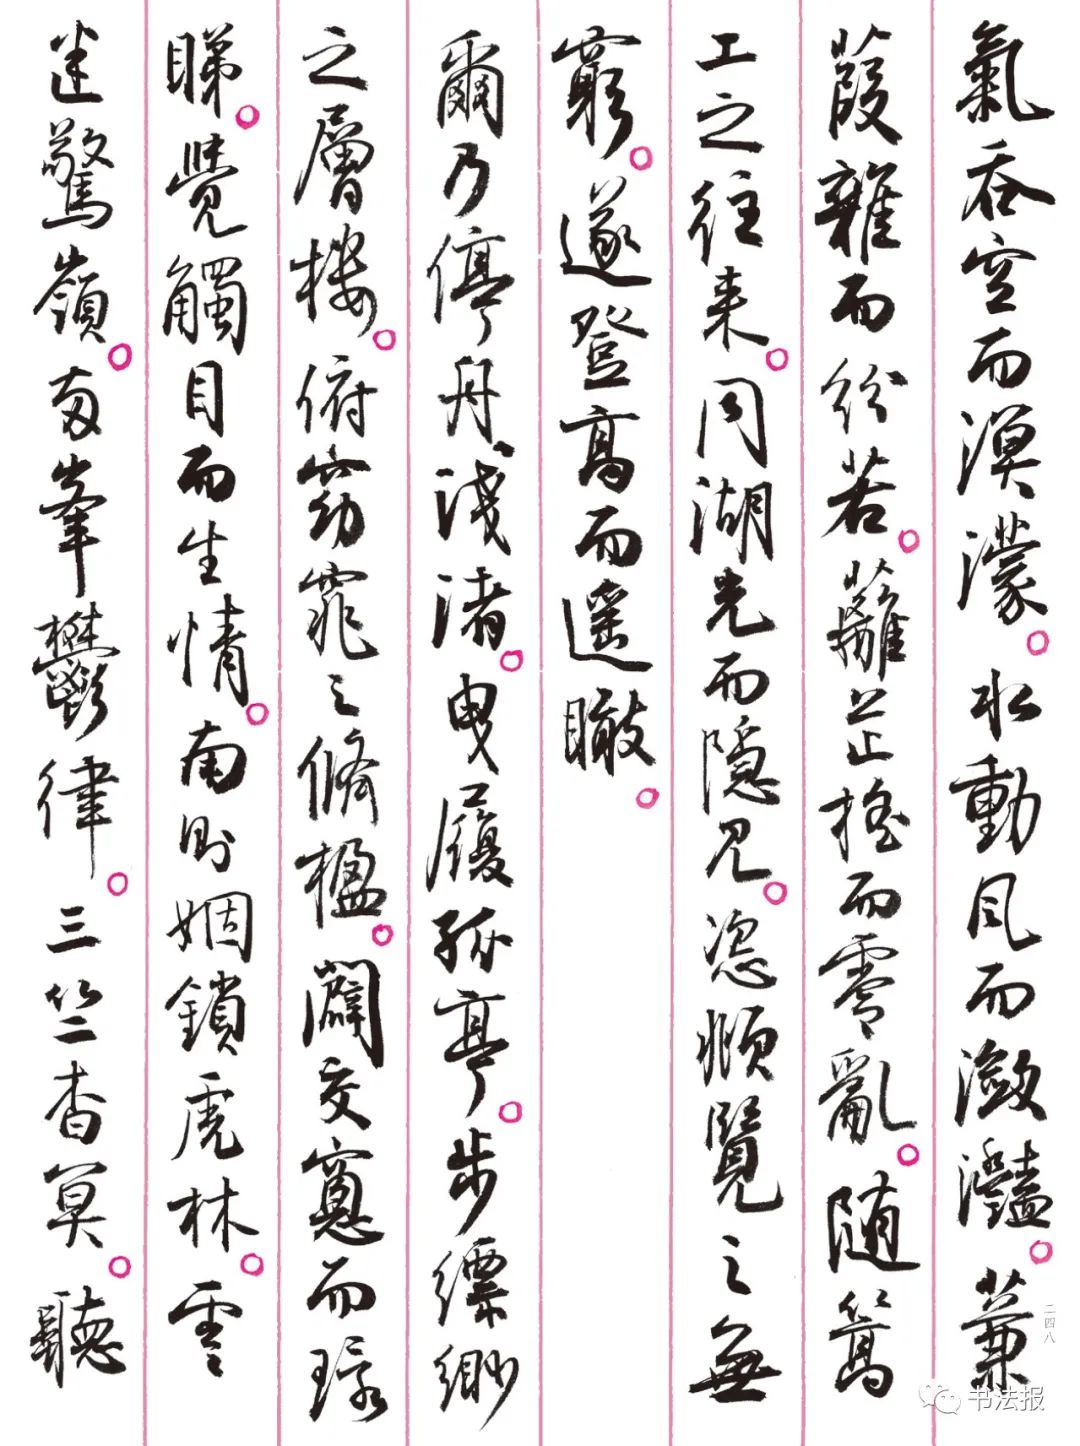 氣吞空而漠濛。水動風而瀲灩。蒹
葭雜而紛若。蘺芷搖而零亂。随篙
工之往来。同湖光而隱見。恣顺覽之無
窮。遂登高而遥瞰。
爾乃停舟浅渚。曳履孤亭。步縹緲
之層楼。俯窈窕之脩楹。闢交窻而
睇。覺觸目而生情。南則烟鎖虎林。雲
迷鷲嶺。两峯欝律。三竺杳冥。聽
二四八
书法报